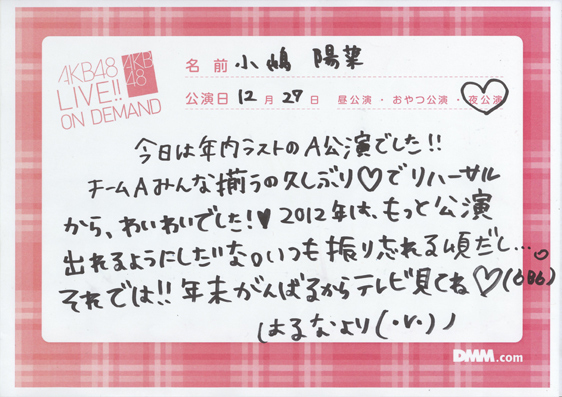 AKB48
LIVE!!
ON DEMAND
AKB
48
名前 小嶋 陽菜
公演日 12月27日 昼公演・おやつ公演・夜公演
今日は年内ラストのA公演でした!!
チームAみんな揃うの久しぶり♡でリハーサル
から、わいわいでした!♥ 2012年は、もっと公演
出れるようにしたいな。いつも振り忘れる頃だし…。
それでは!!年末がんばるからテレビ見てね♡(686)
はるなより(・v・)ノ
DMM.com